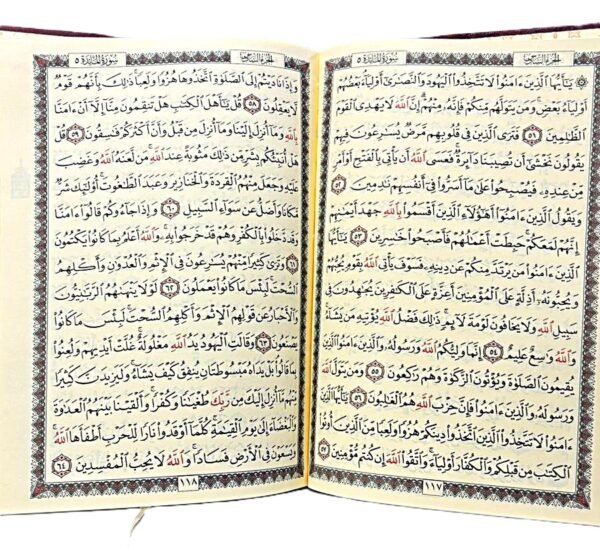 الجزء السادس سورة المائدة ٥
۞ يَٰٓأَيُّهَا ٱلَّذِينَ ءَامَنُوا۟ لَا تَتَّخِذُوا۟ ٱلْيَهُودَ وَٱلنَّصَٰرَىٰٓ أَوْلِيَآءَۘ بَعْضُهُمْ
أَوْلِيَآءُ بَعْضٍۚ وَمَن يَتَوَلَّهُم مِّنكُمْ فَإِنَّهُۥ مِنْهُمْۗ إِنَّ ٱللَّهَ لَا يَهْدِى ٱلْقَوْمَ
ٱلظَّٰلِمِينَ ٥١ فَتَرَى ٱلَّذِينَ فِى قُلُوبِهِم مَّرَضٌ يُسَٰرِعُونَ فِيهِمْ
يَقُولُونَ نَخْشَىٰٓ أَن تُصِيبَنَا دَآئِرَةٌۚ فَعَسَى ٱللَّهُ أَن يَأْتِىَ بِٱلْفَتْحِ أَوْ أَمْرٍ
مِّنْ عِندِهِۦ فَيُصْبِحُوا۟ عَلَىٰ مَآ أَسَرُّوا۟ فِىٓ أَنفُسِهِمْ نَٰدِمِينَ ٥٢
وَيَقُولُ ٱلَّذِينَ ءَامَنُوٓا۟ أَهَٰٓؤُلَآءِ ٱلَّذِينَ أَقْسَمُوا۟ بِٱللَّهِ جَهْدَ أَيْمَٰنِهِمْۙ
إِنَّهُمْ لَمَعَكُمْۚ حَبِطَتْ أَعْمَٰلُهُمْ فَأَصْبَحُوا۟ خَٰسِرِينَ ٥٣ يَٰٓأَيُّهَا
ٱلَّذِينَ ءَامَنُوا۟ مَن يَرْتَدَّ مِنكُمْ عَن دِينِهِۦ فَسَوْفَ يَأْتِى ٱللَّهُ بِقَوْمٍ يُحِبُّهُمْ
وَيُحِبُّونَهُۥٓ أَذِلَّةٍ عَلَى ٱلْمُؤْمِنِينَ أَعِزَّةٍ عَلَى ٱلْكَٰفِرِينَ يُجَٰهِدُونَ فِى
سَبِيلِ ٱللَّهِ وَلَا يَخَافُونَ لَوْمَةَ لَآئِمٍۚ ذَٰلِكَ فَضْلُ ٱللَّهِ يُؤْتِيهِ مَن يَشَآءُۚ
وَٱللَّهُ وَٰسِعٌ عَلِيمٌ ٥٤ إِنَّمَا وَلِيُّكُمُ ٱللَّهُ وَرَسُولُهُۥ وَٱلَّذِينَ ءَامَنُوا۟ ٱلَّذِينَ
يُقِيمُونَ ٱلصَّلَوٰةَ وَيُؤْتُونَ ٱلزَّكَوٰةَ وَهُمْ رَٰكِعُونَ ٥٥ وَمَن يَتَوَلَّ ٱللَّهَ
وَرَسُولَهُۥ وَٱلَّذِينَ ءَامَنُوا۟ فَإِنَّ حِزْبَ ٱللَّهِ هُمُ ٱلْغَٰلِبُونَ ٥٦ يَٰٓأَيُّهَا ٱلَّذِينَ
ءَامَنُوا۟ لَا تَتَّخِذُوا۟ ٱلَّذِينَ ٱتَّخَذُوا۟ دِينَكُمْ هُزُوًا وَلَعِبًا مِّنَ ٱلَّذِينَ أُوتُوا۟
ٱلْكِتَٰبَ مِن قَبْلِكُمْ وَٱلْكُفَّارَ أَوْلِيَآءَۚ وَٱتَّقُوا۟ ٱللَّهَ إِن كُنتُم مُّؤْمِنِينَ ٥٧
١١٧
الجزء السادس سورة المائدة ٥
وَإِذَا نَادَيْتُمْ إِلَى ٱلصَّلَوٰةِ ٱتَّخَذُوهَا هُزُوًا وَلَعِبًاۚ ذَٰلِكَ بِأَنَّهُمْ قَوْمٌ
لَّا يَعْقِلُونَ ٥٨ قُلْ يَٰٓأَهْلَ ٱلْكِتَٰبِ هَلْ تَنقِمُونَ مِنَّآ إِلَّآ أَنْ ءَامَنَّا
بِٱللَّهِ وَمَآ أُنزِلَ إِلَيْنَا وَمَآ أُنزِلَ مِن قَبْلُ وَأَنَّ أَكْثَرَكُمْ فَٰسِقُونَ ٥٩ قُلْ
هَلْ أُنَبِّئُكُم بِشَرٍّ مِّن ذَٰلِكَ مَثُوبَةً عِندَ ٱللَّهِۚ مَن لَّعَنَهُ ٱللَّهُ وَغَضِبَ
عَلَيْهِ وَجَعَلَ مِنْهُمُ ٱلْقِرَدَةَ وَٱلْخَنَازِيرَ وَعَبَدَ ٱلطَّٰغُوتَۚ أُو۟لَٰٓئِكَ شَرٌّ
مَّكَانًا وَأَضَلُّ عَن سَوَآءِ ٱلسَّبِيلِ ٦٠ وَإِذَا جَآءُوكُمْ قَالُوٓا۟ ءَامَنَّا
وَقَد دَّخَلُوا۟ بِٱلْكُفْرِ وَهُمْ قَدْ خَرَجُوا۟ بِهِۦۚ وَٱللَّهُ أَعْلَمُ بِمَا كَانُوا۟ يَكْتُمُونَ
٦١ وَتَرَىٰ كَثِيرًا مِّنْهُمْ يُسَٰرِعُونَ فِى ٱلْإِثْمِ وَٱلْعُدْوَٰنِ وَأَكْلِهِمُ
ٱلسُّحْتَۚ لَبِئْسَ مَا كَانُوا۟ يَعْمَلُونَ ٦٢ لَوْلَا يَنْهَىٰهُمُ ٱلرَّبَّٰنِيُّونَ
وَٱلْأَحْبَارُ عَن قَوْلِهِمُ ٱلْإِثْمَ وَأَكْلِهِمُ ٱلسُّحْتَۚ لَبِئْسَ مَا كَانُوا۟
يَصْنَعُونَ ٦٣ وَقَالَتِ ٱلْيَهُودُ يَدُ ٱللَّهِ مَغْلُولَةٌۚ غُلَّتْ أَيْدِيهِمْ وَلُعِنُوا۟
بِمَا قَالُوا۟ۘ بَلْ يَدَاهُ مَبْسُوطَتَانِ يُنفِقُ كَيْفَ يَشَآءُۚ وَلَيَزِيدَنَّ كَثِيرًا
مِّنْهُم مَّآ أُنزِلَ إِلَيْكَ مِن رَّبِّكَ طُغْيَٰنًا وَكُفْرًاۚ وَأَلْقَيْنَا بَيْنَهُمُ ٱلْعَدَٰوَةَ
وَٱلْبَغْضَآءَ إِلَىٰ يَوْمِ ٱلْقِيَٰمَةِۚ كُلَّمَآ أَوْقَدُوا۟ نَارًا لِّلْحَرْبِ أَطْفَأَهَا ٱللَّهُۚ
وَيَسْعَوْنَ فِى ٱلْأَرْضِ فَسَادًاۚ وَٱللَّهُ لَا يُحِبُّ ٱلْمُفْسِدِينَ ٦٤
١١٨